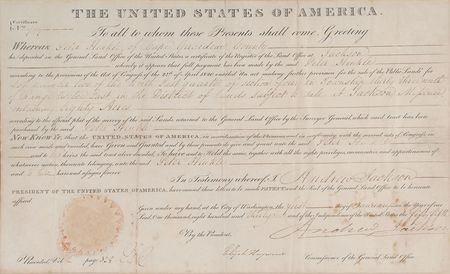 THE UNITED STATES OF AMERICA.
Certificate
To all to whom these Presents shall come, Greeting
Whereas Peter Hinkle of Cape Girardeau County
has deposited in the General Land Office of the United States a certificate of the Register of the Land Office at Jackson
whereby it appears that full payment has been made by the said Peter Hinkle
according to the provisions of the Act of Congress of the 24th of April 1820 entitled An act making further provision for the sale of the Public Lands for
quarter of section in Township thirty
of Range in the District of Lands subject to sale at Jackson Missouri
containing eighty Acres
according to the official plat of the survey of the said Lands returned to the General Land Office by the Surveyor General which said tract has been
purchased by the said Peter
Now Know Ye that the UNITED STATES OF AMERICA, in consideration of the Premises and in conformity with the several acts of Congress in
such case made and provided, have Given and Granted and by these presents do give and grant unto the said Peter
and to his heirs the said tract above described, To have and to Hold the same, together with all the rights, privileges, immunities and appurtenances of
whatsoever nature thereunto belonging unto the said Peter Hinkle
and to his heirs and assigns forever
In Testimony whereof, I Andrew Jackson
PRESIDENT OF THE UNITED STATES OF AMERICA, have caused these letters to be made PATENT and the Seal of the General Land Office to be hereunto
affixed
Given under my hand at the City of Washington, the first day of in the Year of our
Lord One thousand, eight hundred and thirty and of the Independence of the United States the fifty fifth
By the President. Andrew Jackson
Recorded, Vol page
Commissioner of the General Land Office